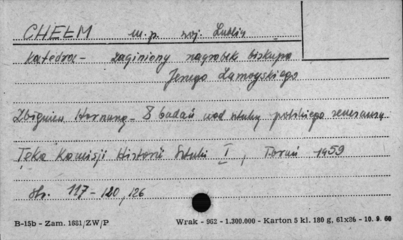 CHEŁM m.p. woj. Lublin
Katedra - zaginiony nagrobek biskupa
Jerzego Zamoyskiego
Zbigniew Hornung - Z badań nad sztuką polskiego renesansu
Teka Komisji Historii Sztuki I, Toruń 1959
str. 117-120, 126
B-15b - Zam. 1681/ZW/P Wrak - 982 - 1.300.000 - Karton 5 kl. 180 g, 61x86 - 10. 9. 60